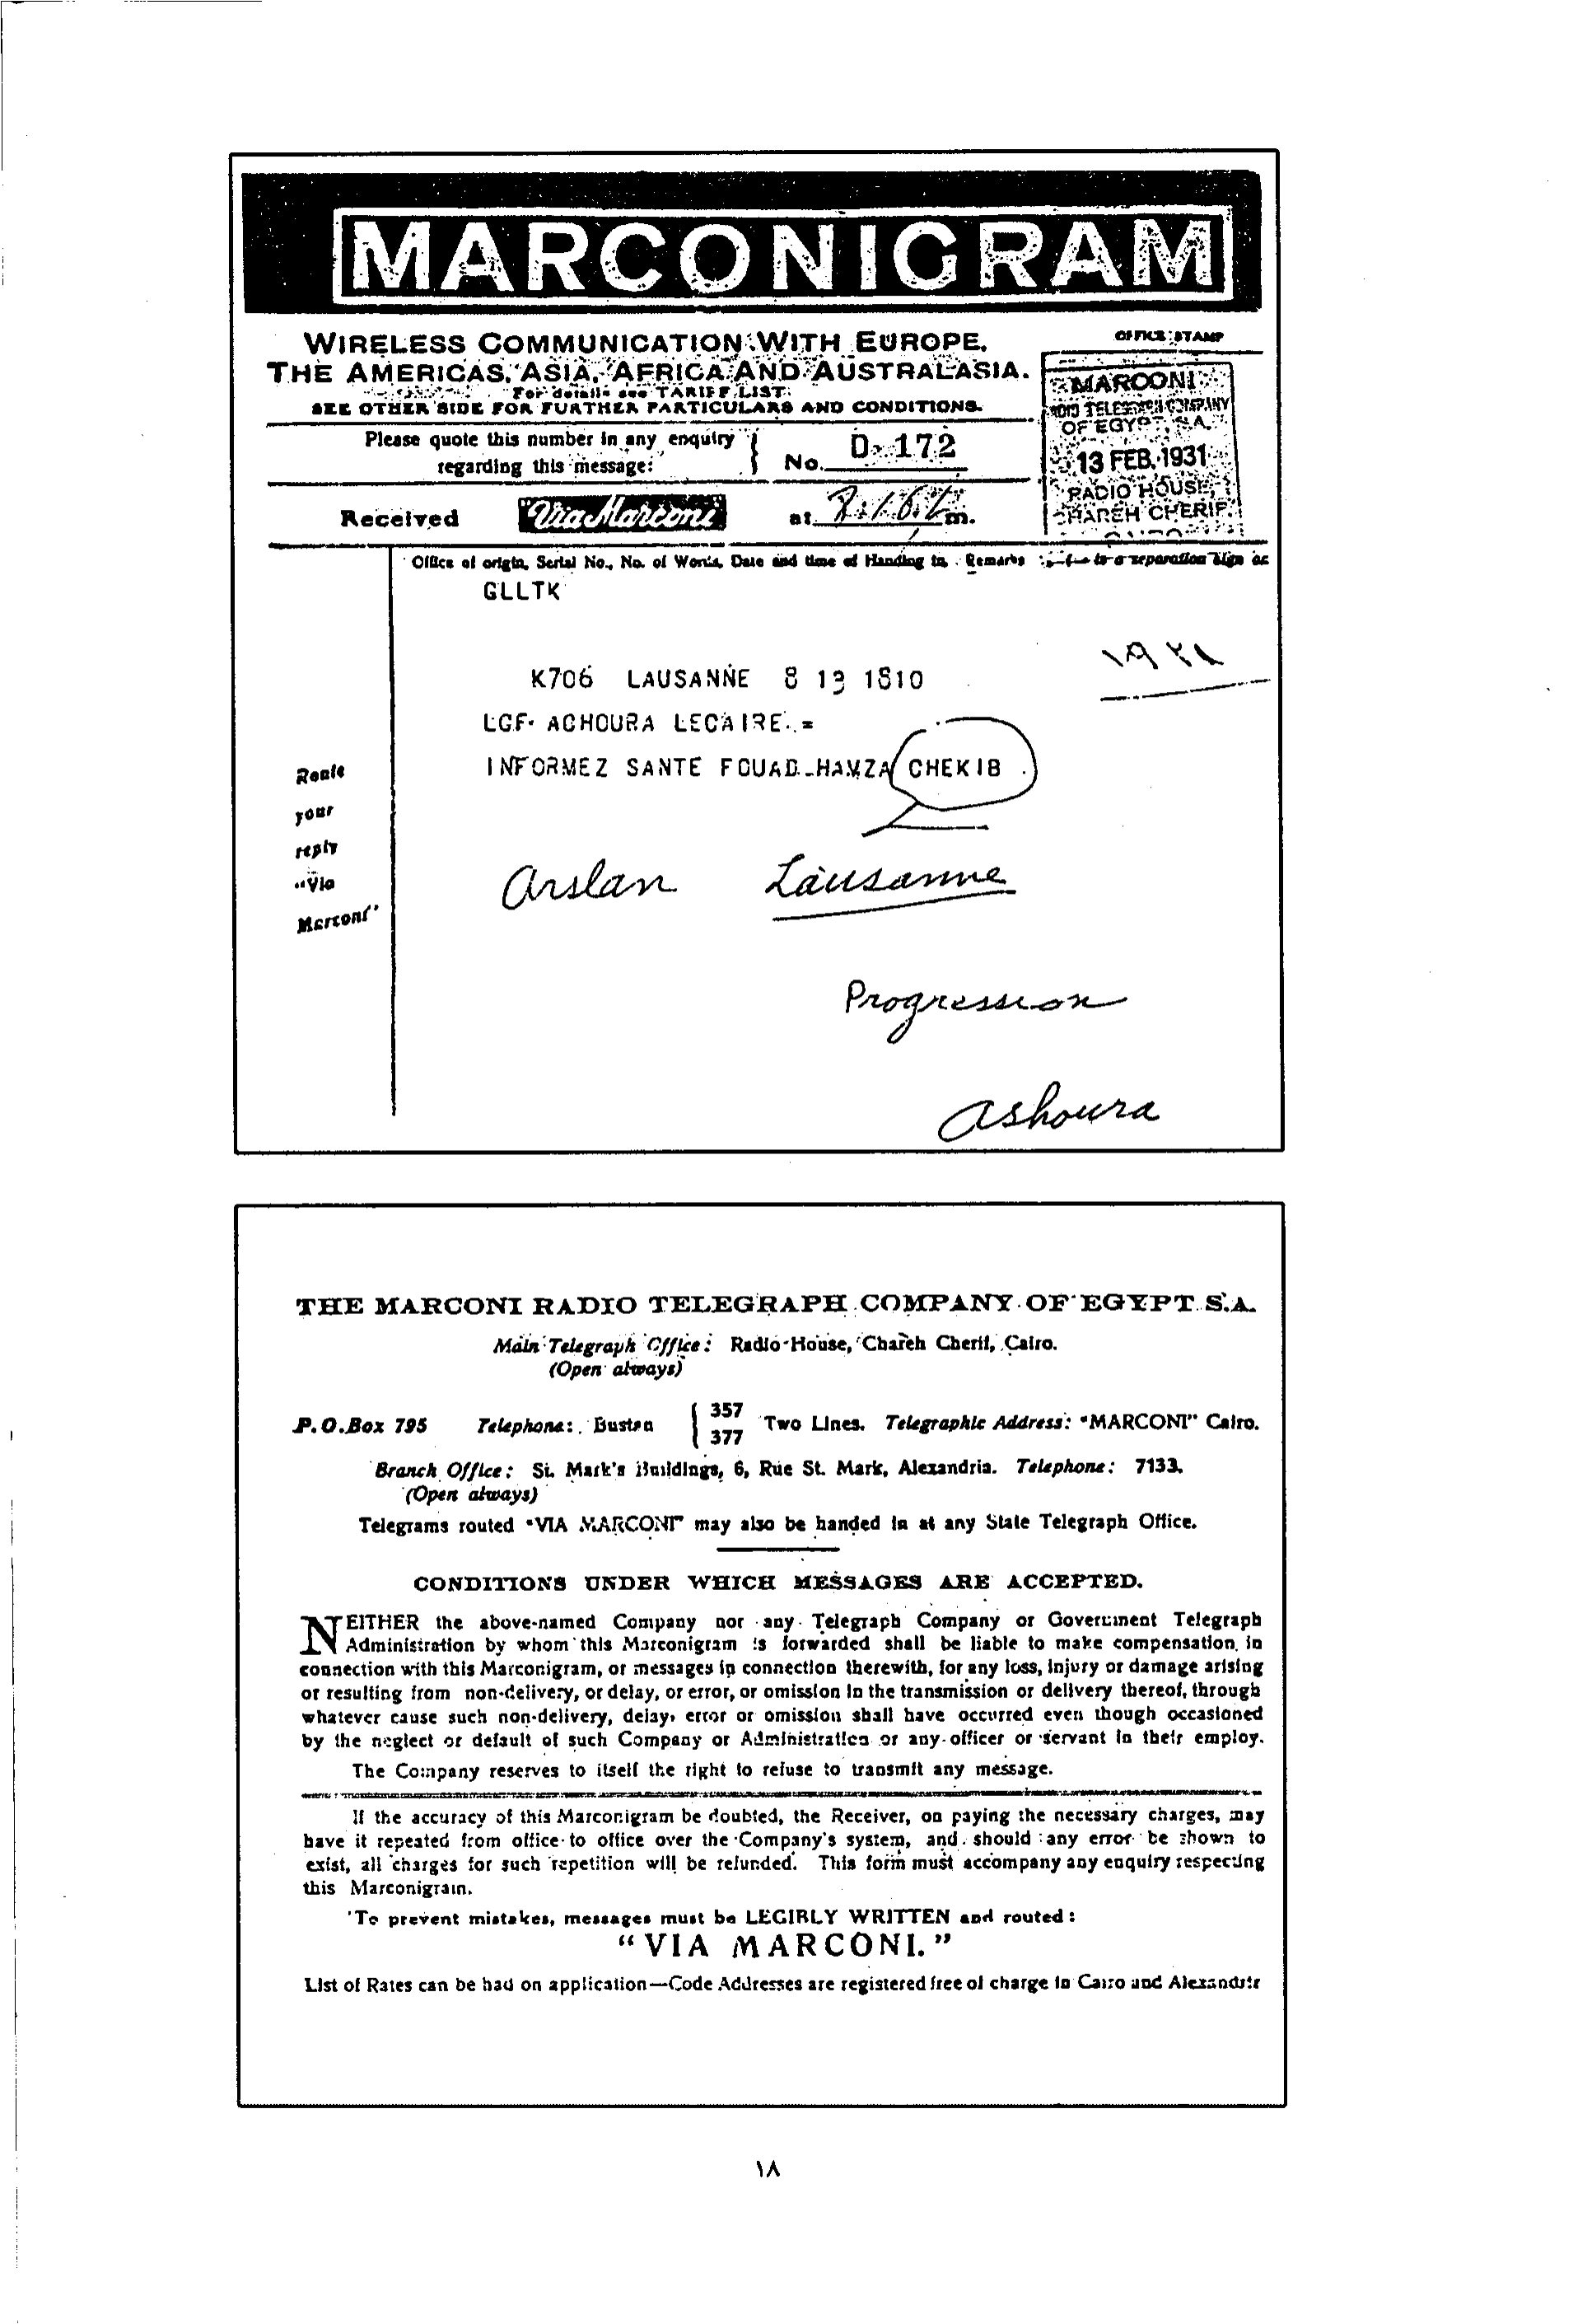 MARCONIGRAM
WIRELESS COMMUNICATION WITH EUROPE.
THE AMERICAS, ASIA, AFRICA AND AUSTRALASIA.
For details see TARIFF LIST.
SEE OTHER SIDE FOR FURTHER PARTICULARS AND CONDITIONS.
OFFICE STAMP
MARCONI
TELEGRAPH COMPANY
OF EGYPT, S.A.
13 FEB. 1931
RADIO HOUSE,
SHAREH CHERIF,
Please quote this number in any enquiry
regarding this message:
No. D. 172
Received "Via Marconi" at m.
Office of origin, Serial No., No. of Words, Date and time of Handing in, Remarks is a separation sign
GLLTK
١٩٣١
K706 LAUSANNE 8 13 1810
LGF. ACHOURA LECAIRE. =
INFORMEZ SANTE FOUAD HAMZA CHEKIB
Route
your
reply
"Via
Marconi"
Arslan Lausanne
Progression
Ashoura
THE MARCONI RADIO TELEGRAPH COMPANY OF EGYPT S.A.
Main Telegraph Office: Radio-House, Chareh Cherif, Cairo.
(Open always)
P.O.Box 795 Telephone: Bustan { 357 377 Two Lines. Telegraphic Address: "MARCONI" Cairo.
Branch Office: St. Mark's Buildings, 6, Rue St. Mark, Alexandria. Telephone: 7133.
(Open always)
Telegrams routed "VIA MARCONI" may also be handed in at any State Telegraph Office.
CONDITIONS UNDER WHICH MESSAGES ARE ACCEPTED.
NEITHER the above-named Company nor any Telegraph Company or Government Telegraph
Administration by whom this Marconigram is forwarded shall be liable to make compensation in
connection with this Marconigram, or messages in connection therewith, for any loss, injury or damage arising
or resulting from non-delivery, or delay, or error, or omission in the transmission or delivery thereof, through
whatever cause such non-delivery, delay, error or omission shall have occurred even though occasioned
by the neglect or default of such Company or Administration or any officer or servant in their employ.
The Company reserves to itself the right to refuse to transmit any message.
If the accuracy of this Marconigram be doubted, the Receiver, on paying the necessary charges, may
have it repeated from office to office over the Company's system, and should any error be shown to
exist, all charges for such repetition will be refunded. This form must accompany any enquiry respecting
this Marconigram.
To prevent mistakes, messages must be LEGIBLY WRITTEN and routed:
"VIA MARCONI."
List of Rates can be had on application—Code Addresses are registered free of charge in Cairo and Alexandria
١٨